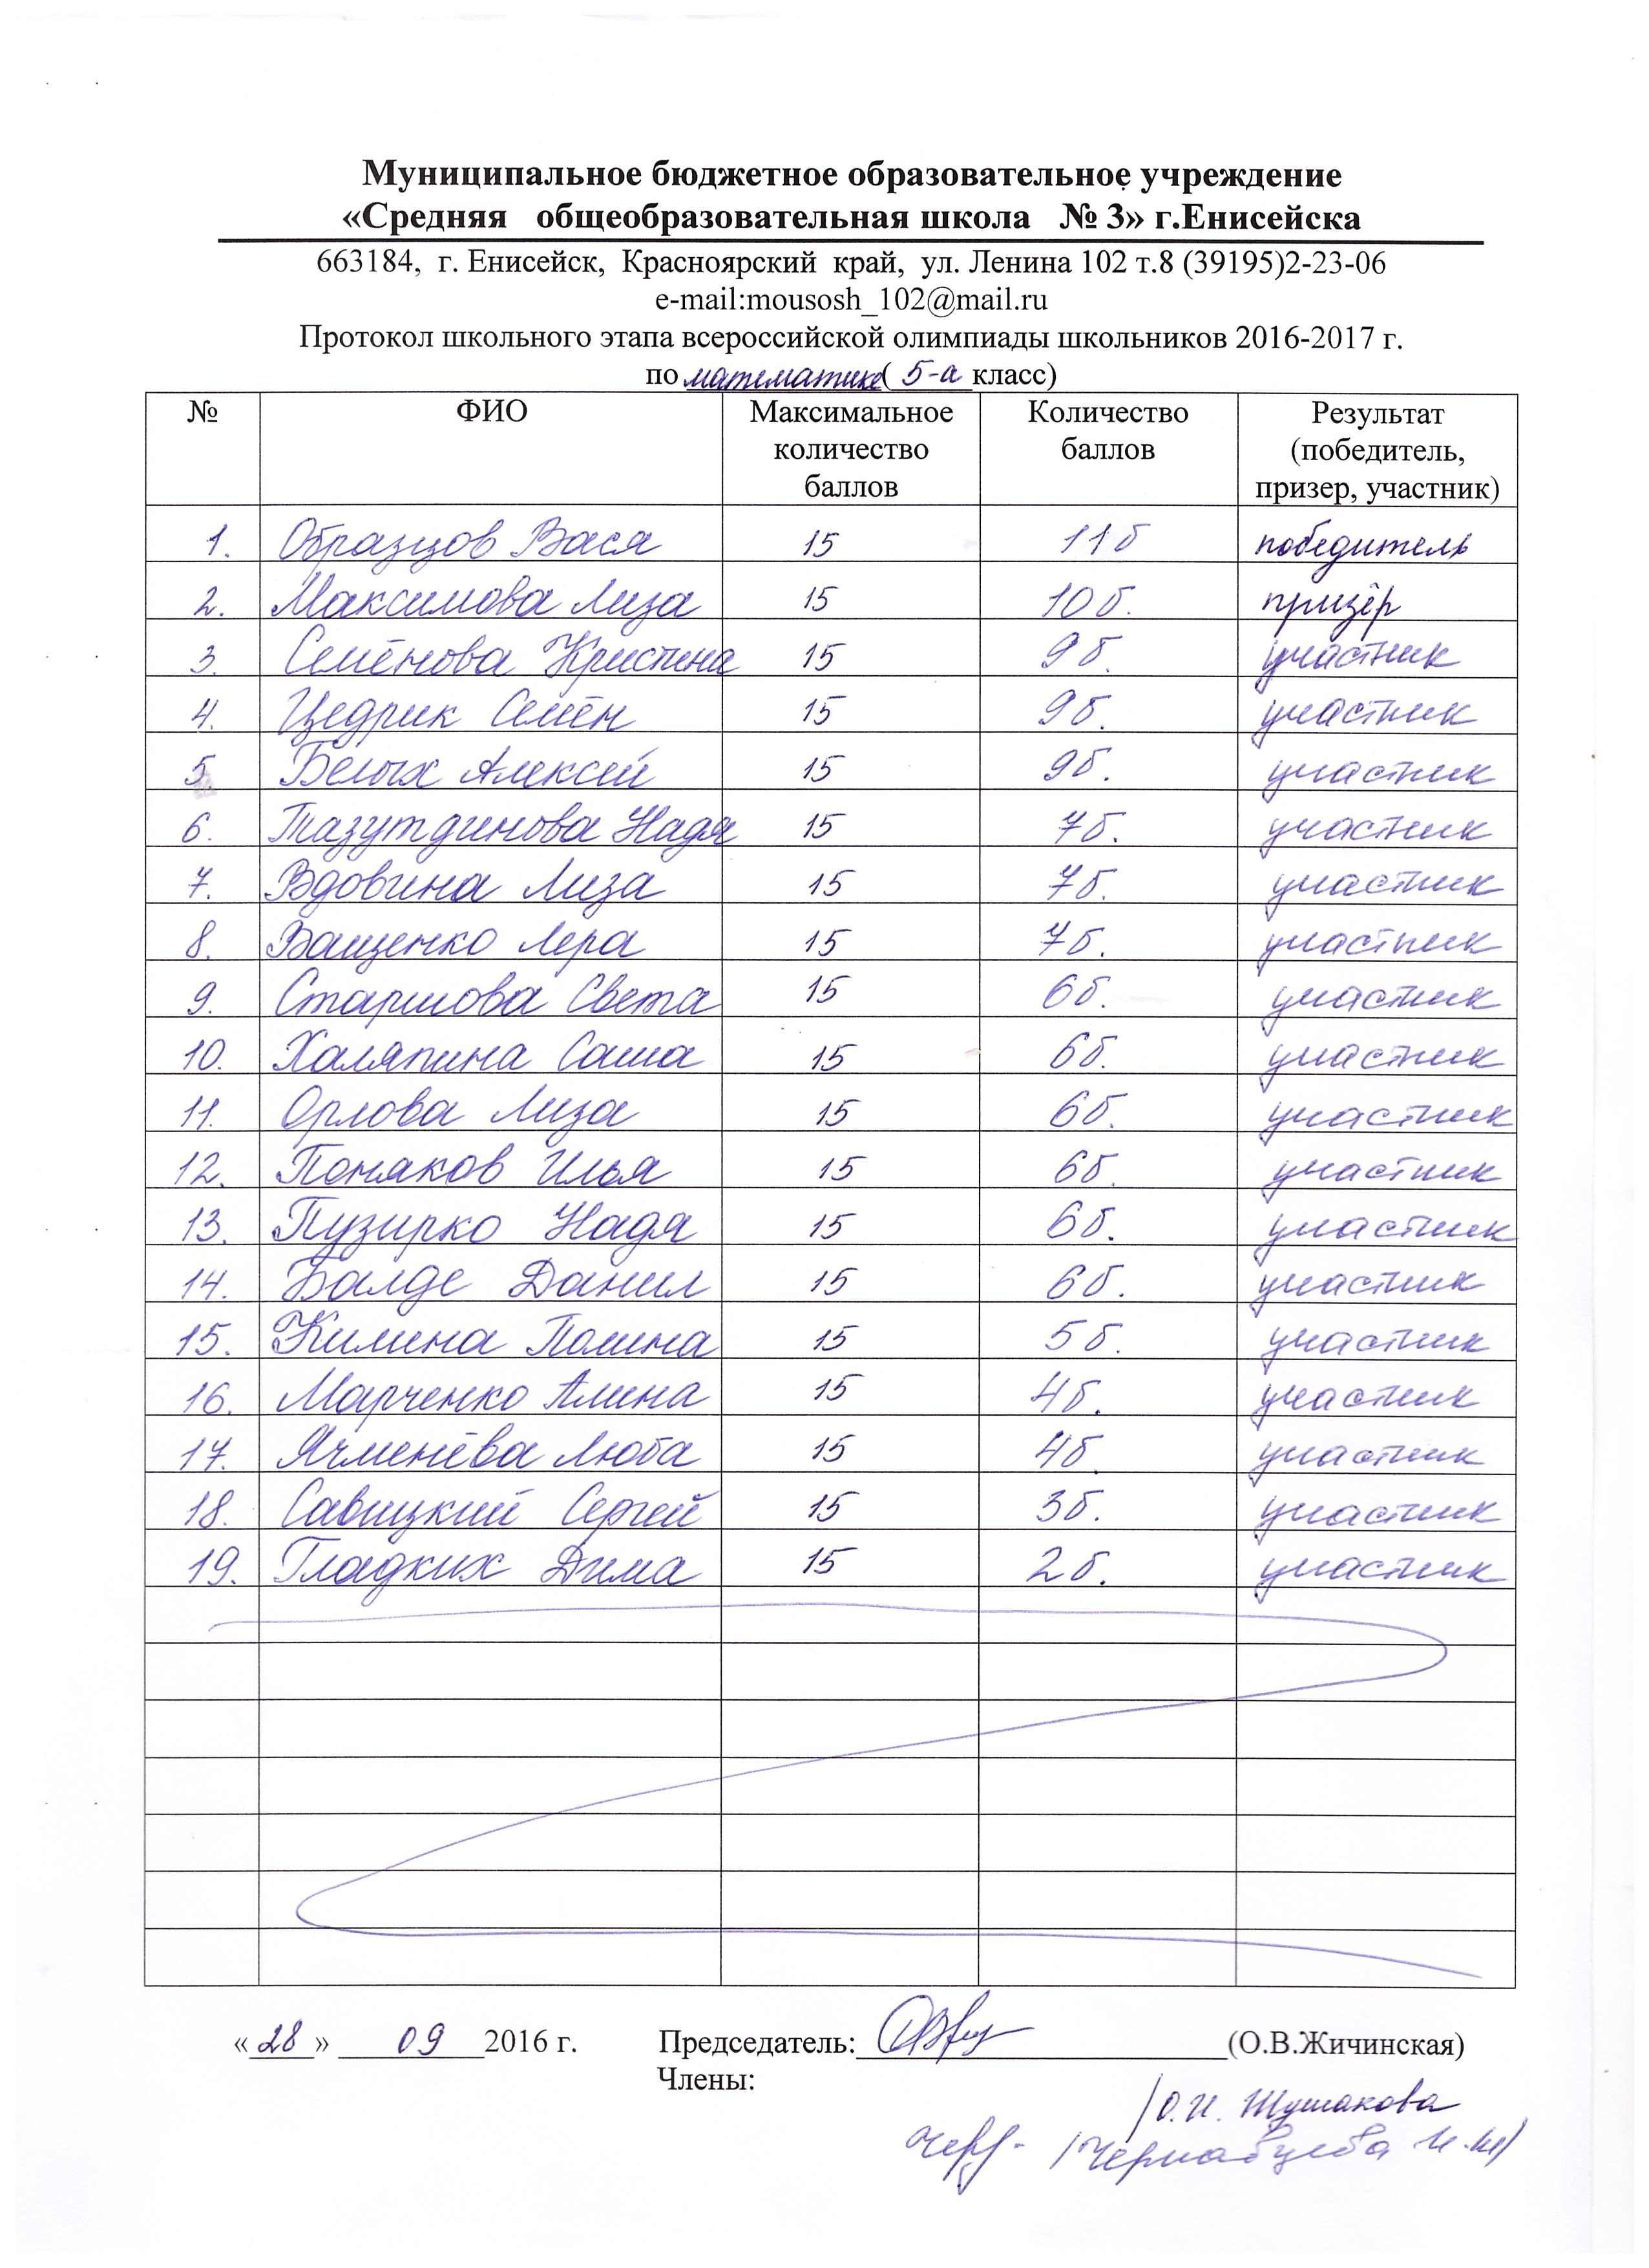 Муниципальное бюджетное образовательное учреждение
«Средняя общеобразовательная школа № 3» г.Енисейска
663184, г. Енисейск, Красноярский край, ул. Ленина 102 т.8 (39195)2-23-06
e-mail:mousosh_102@mail.ru
Протокол школьного этапа всероссийской олимпиады школьников 2016-2017 г.
по математике( 5-а класс)
№ ФИО Максимальное количество баллов Количество баллов Результат (победитель, призер, участник)
1. Образцов Вася 15 11б победитель
2. Максимова Лиза 15 10б. призёр
3. Семёнова Кристина 15 9б. участник
4. Цедрик Семён 15 9б. участник
5 Белых Алексей 15 9б. участник
6. Тазутдинова Надя 15 7б. участник
7. Вдовина Лиза 15 7б. участник
8. Ващенко Лера 15 7б. участник
9. Старшова Света 15 6б. участник
10. Халяпина Саша 15 6б. участник
11. Орлова Лиза 15 6б. участник
12. Поняков Илья 15 6б. участник
13. Пузирко Надя 15 6б. участник
14. Балде Данил 15 6б. участник
15. Килина Полина 15 5б. участник
16. Марченко Алина 15 4б. участник
17. Ячменёва Люба 15 4б. участник
18. Савицкий Сергей 15 3б. участник
19. Гладких Дима 15 2б. участник
«28» 09 2016 г. Председатель: (О.В.Жичинская)
Члены:
/О.И.